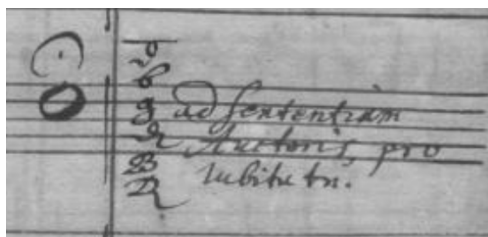 b
g ad sententiam
Auctoris, pro
B lubitu